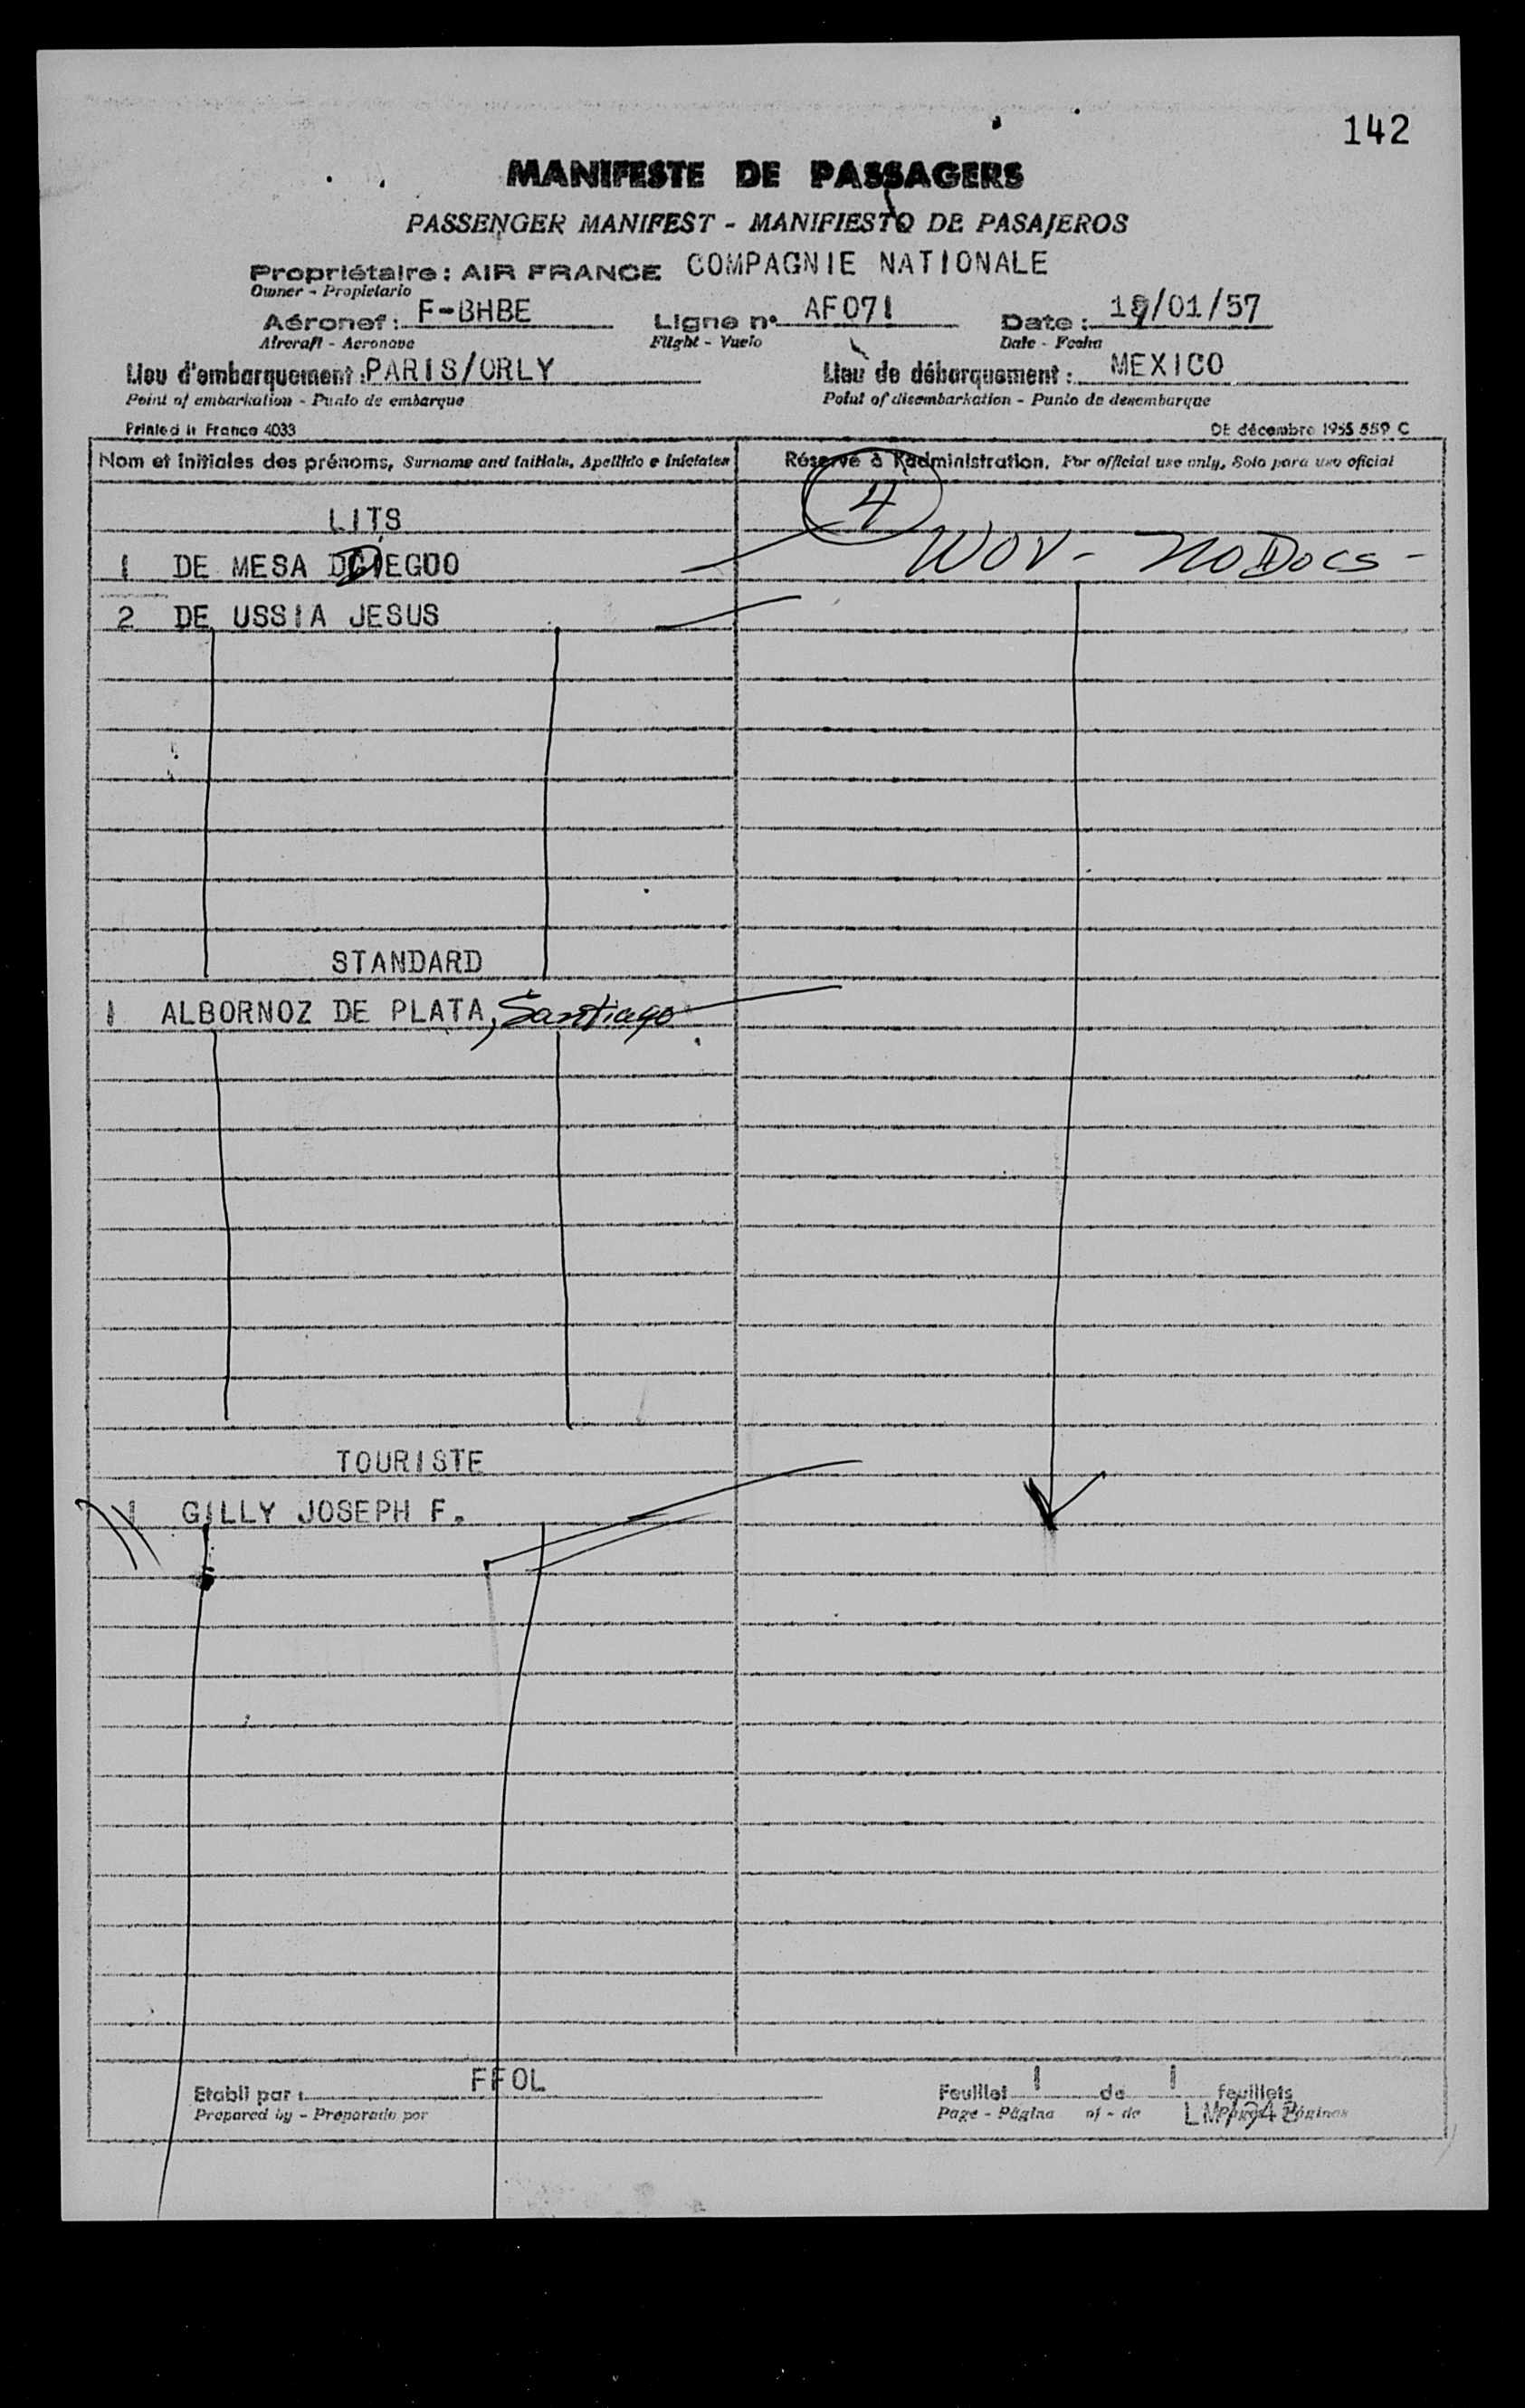 142
MANIFESTE DE PASSAGERS
PASSENGER MANIFEST - MANIFIESTO DE PASAJEROS
Propriétaire : AIR FRANCE COMPAGNIE NATIONALE
Owner - Propietario
Aéronef : F-BHBE Ligne n° AF071 Date : /01/57
Aircraft - Aeronave Flight - Vuelo Date - Fecha
Lieu d'embarquement : PARIS/ORLY Lieu de débarquement : MEXICO
Point of embarkation - Punto de embarque Point of disembarkation - Punto de desembarque
Printed in France 4033 DE décembre 1955 559 C
Nom et initiales des prénoms, Surname and initials, Apellido e iniciales Réservé à l'administration. For official use only, Solo para uso oficial
LITS 4
1 DE MESA WOV - NO Docs -
2 DE USSIA JESUS
STANDARD
1 ALBORNOZ DE PLATA, Santiago
TOURISTE
1 GILLY JOSEPH F.
Etabli par : FFOL Feuillet 1 de 1 feuillets
Prepared by - Preparado por Page - Página of - de Páginas